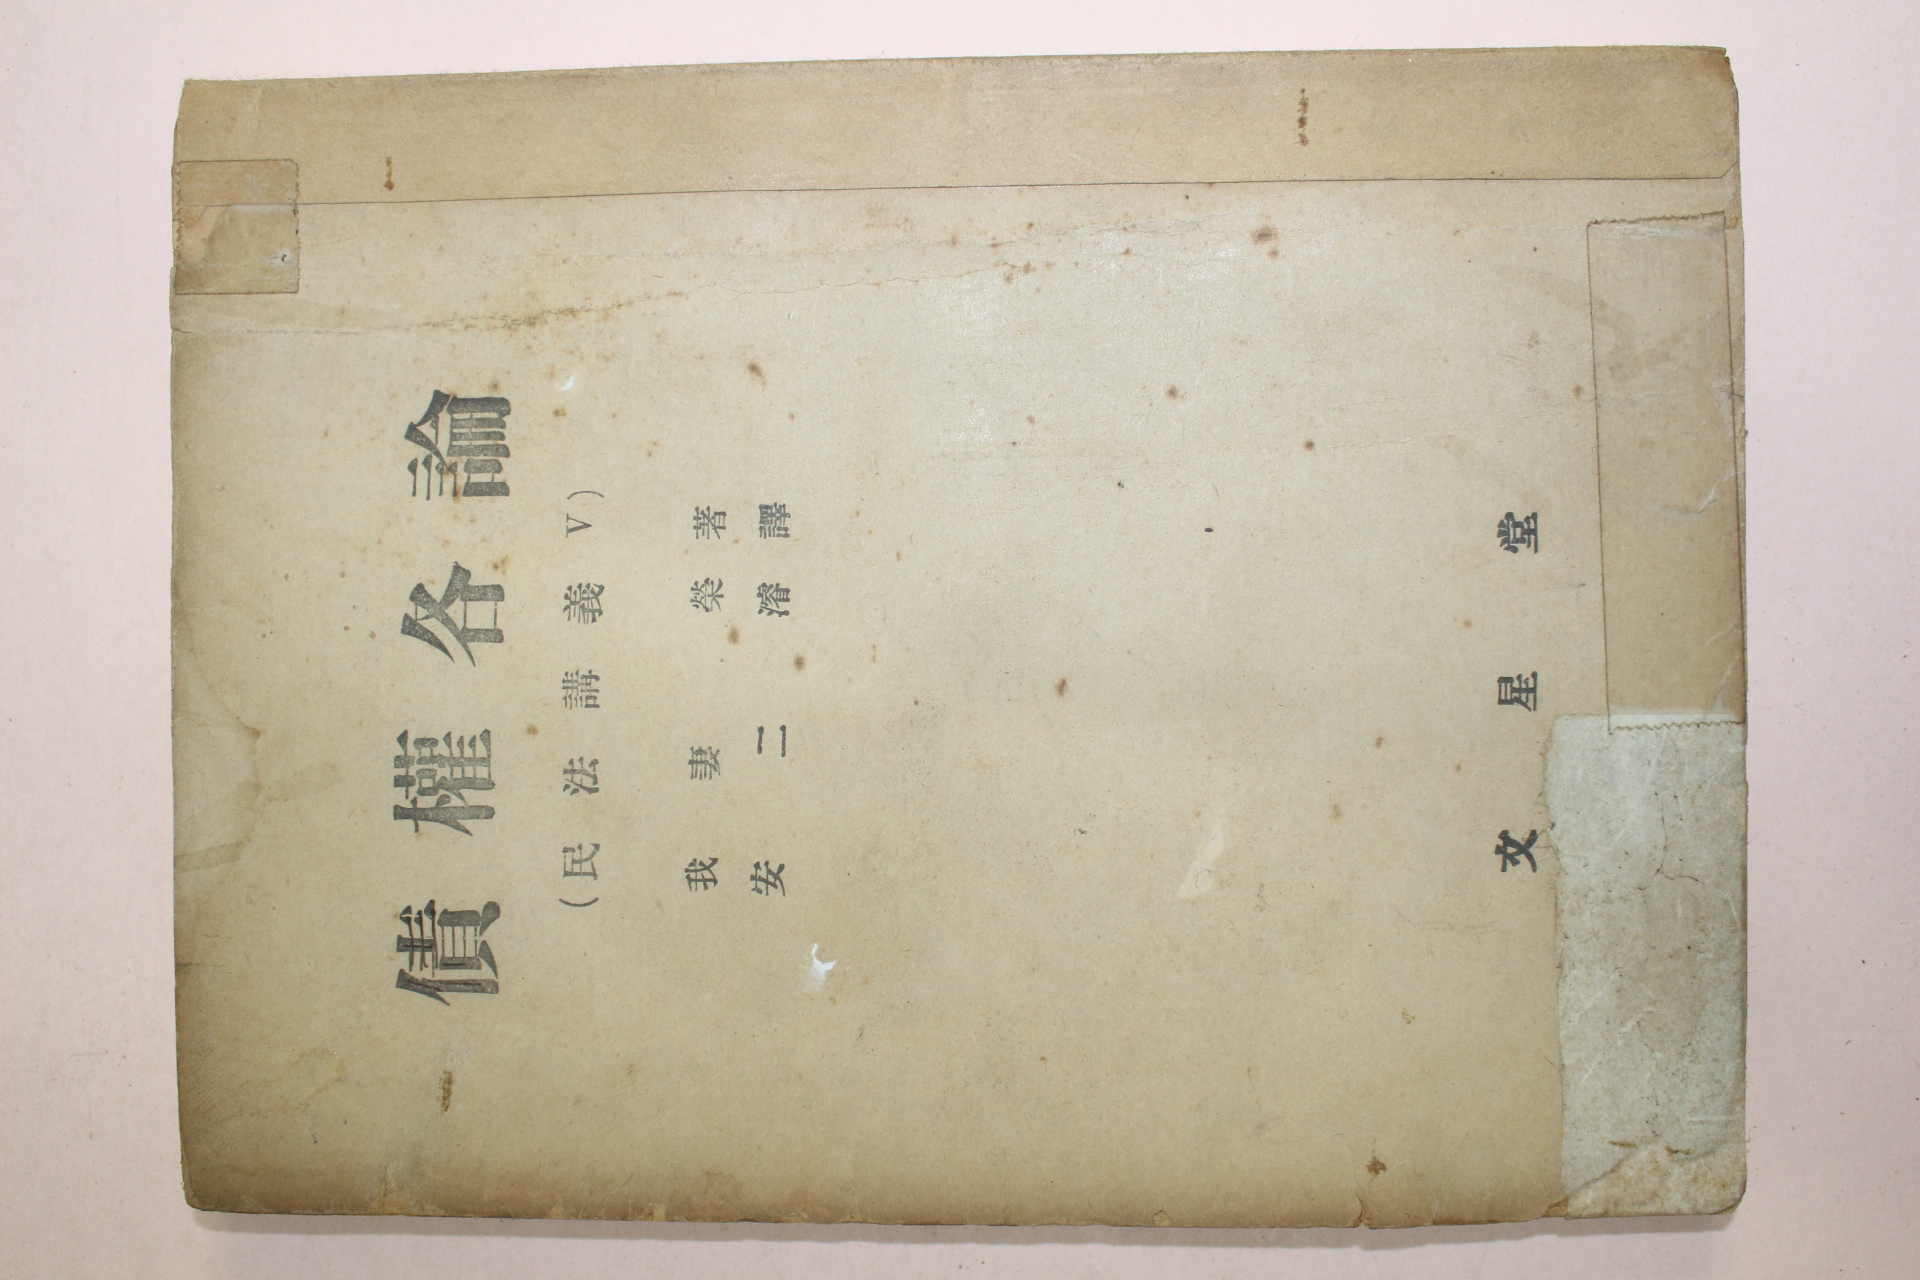 債權各論
(民法講義V)
我妻榮著
安二濬譯
文星堂